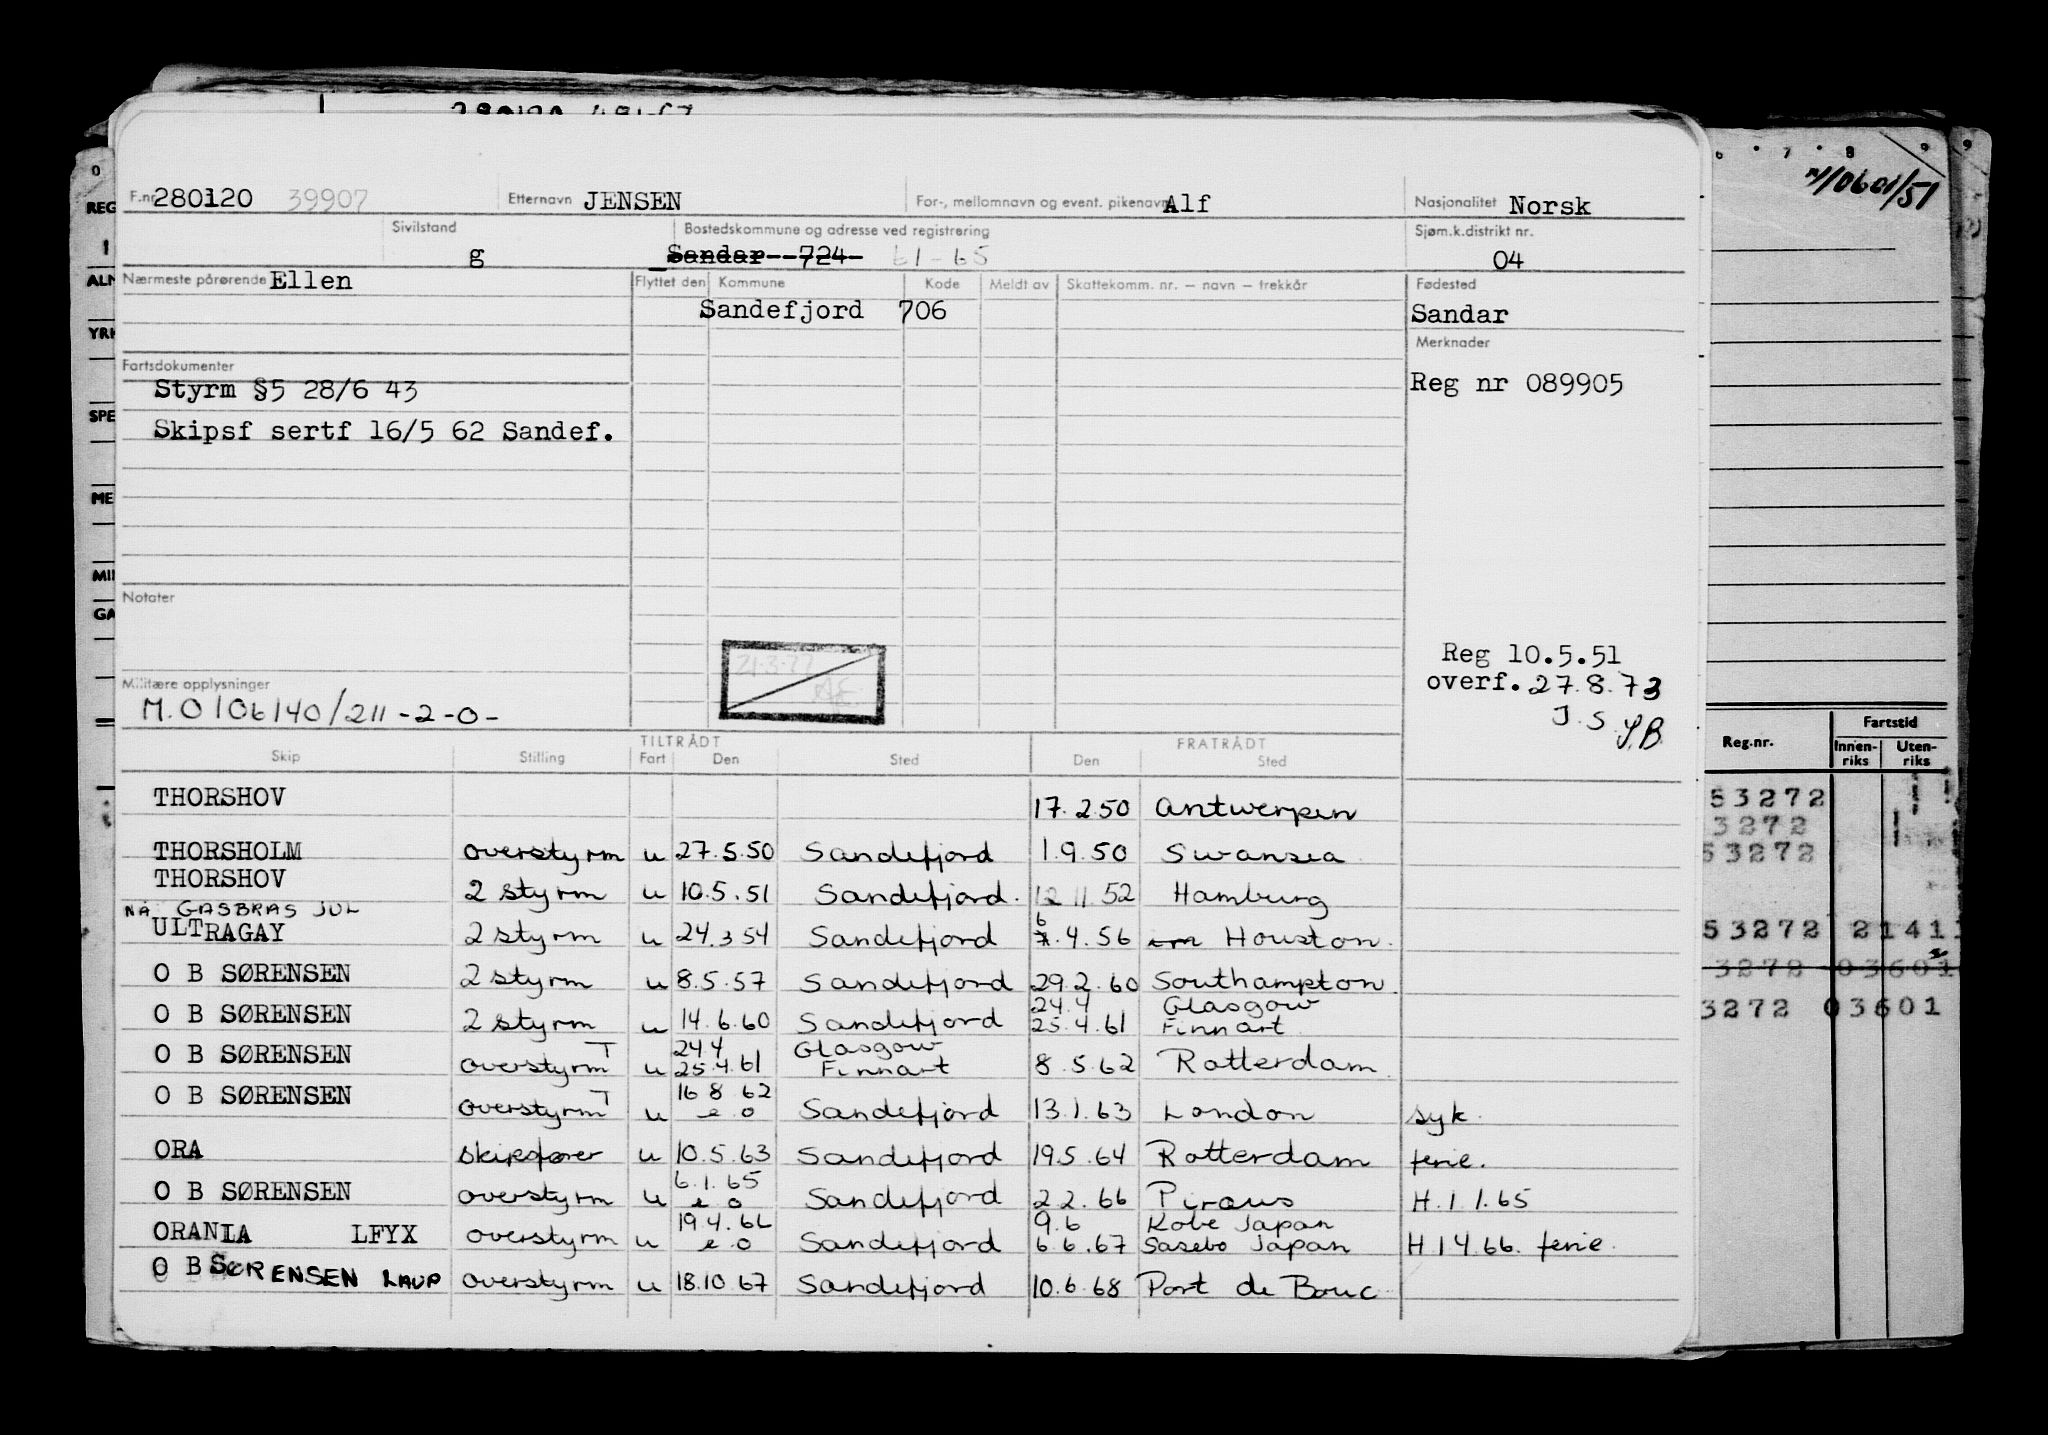 280120 481-67
F.nr. 280120 39907 Etternavn JENSEN For-, mellomnavn og event. pikenavn Alf Nasjonalitet Norsk
Sivilstand g Bostedskommune og adresse ved registrering Sandar--724- 61-65 Sjøm.k.distrikt nr. 04
Nærmeste pårørende Ellen Flyttet den Kommune Kode Meldt av Skattekomm. nr. — navn — trekkår Fødested
Sandefjord 706 Sandar
Merknader
Fartsdokumenter
Styrm §5 28/6 43 Reg nr 089905
Skipsf sertf 16/5 62 Sandef.
Notater
21.3.77
Reg 10.5.51
Militære opplysninger overf. 27.8.73
M.0106140/211-2-0- J.S. S.B.
TILTRÅDT FRATRÅDT
Skip Stilling Fart Den Sted Den Sted
THORSHOV 17.2.50 Antwerpen
THORSHOLM overstyrm u 27.5.50 Sandefjord 1.9.50 Swansea
THORSHOV 2 styrm u 10.5.51 Sandefjord. 12.11.52 Hamburg
NÅ GASBRAS JUL
ULTRAGAY 2 styrm u 24.3.54 Sandefjord 6 7.4.56 Houston.
O B SØRENSEN 2 styrm u 8.5.57 Sandefjord 29.2.60 Southampton.
24.4 Glasgow
O B SØRENSEN 2 styrm u 14.6.60 Sandefjord 25.4.61 Finnart
T 24.4 Glasgow
O B SØRENSEN overstyrm u 25.4.61 Finnart 8.5.62 Rotterdam.
T 16 8 62
O B SØRENSEN overstyrm u e o Sandefjord 13.1.63 London syk.
ORA skipsfører u 10.5.63 Sandefjord 19.5.64 Rotterdam ferie.
6.1.65
O B SØRENSEN overstyrm u e o Sandefjord 2.2.66 Piraus H.1 1.65
19.4.66 9.6 Kobe Japan
ORANIA LFYX overstyrm u e o Sandefjord 6.6.67 Sasebo Japan H 1 4.66. ferie.
O B SØRENSEN LAUP overstyrm u 18.10.67 Sandefjord 10.6.68 Port de Bouc
0
REG
I
ALM
YRK
SPE
ME
MIL
GA
6 7 8 9 9
Reg.nr. Fartstid
Innen-riks Uten-riks
53272
3272
53272
53272 21411
3272 03601
3272 03601